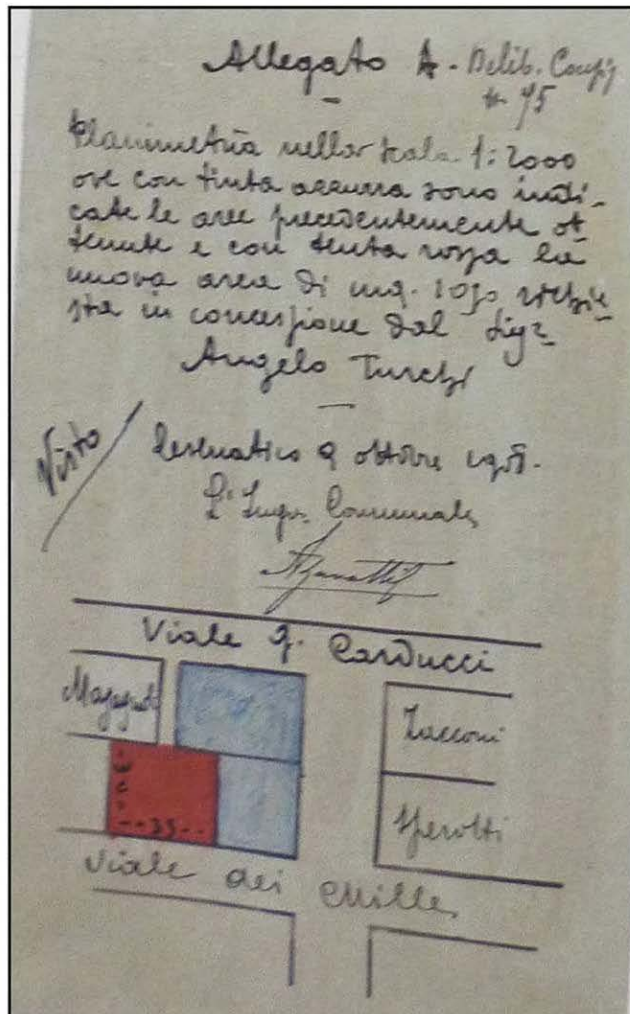 Allegato A - Delib. Consig
n. 75
Planimetria nella scala 1:2000
ove con tinta azzurra sono indi-
cate le aree precedentemente ot
tenute e con tinta rossa la
nuova area di mq. 1050 richie
sta in concessione dal Sigr
Angelo Turchi
Visto
Cesenatico 9 ottobre
L'Ingr Comunale
Viale G. Carducci
Zacconi
Sperotti
--35--
Viale dei Mille